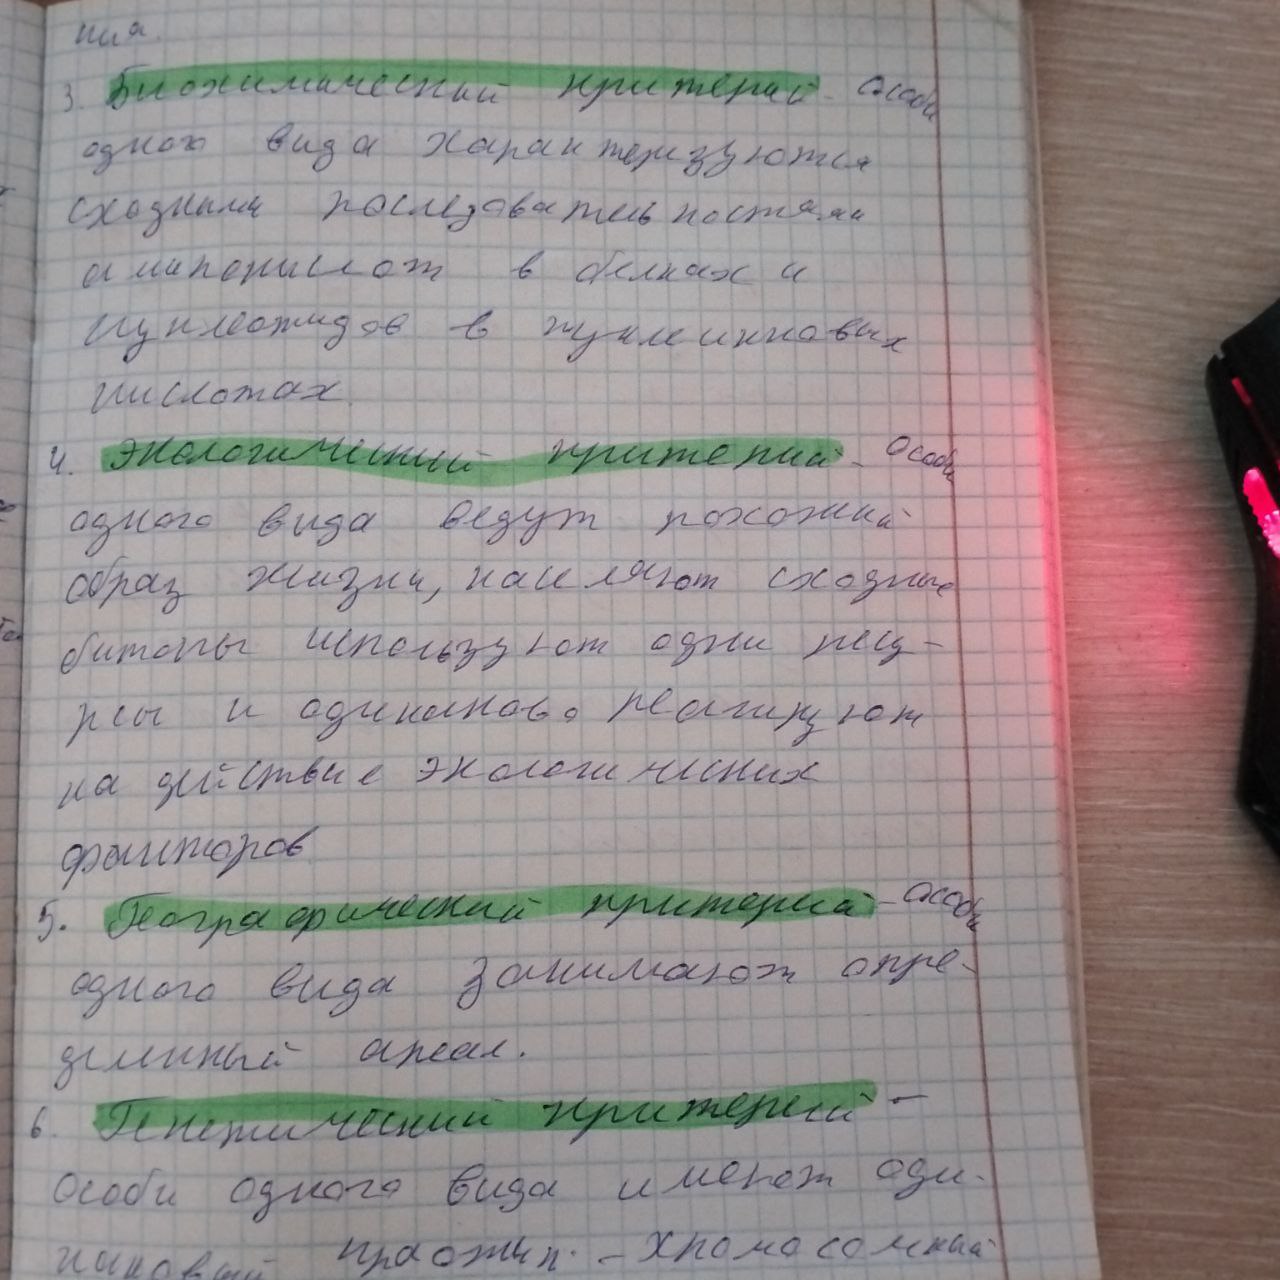 ния.
3. Биохимический критерий - Особи
одного вида характеризуются
сходными последовательностями
аминокислот в белках и
нуклеотидов в нуклеиновых
кислотах.
4. Экологический критерий - Особи
одного вида ведут похожий
образ жизни, населяют сходные
битопы используют одни ресу-
рсы и одинаково реагируют
на действие экологических
факторов
5. Географический критерий - Особи
одного вида занимают опре-
деленный ареал.
6. Генетический критерий -
Особи одного вида имеют оди-
наковый - хромосомный